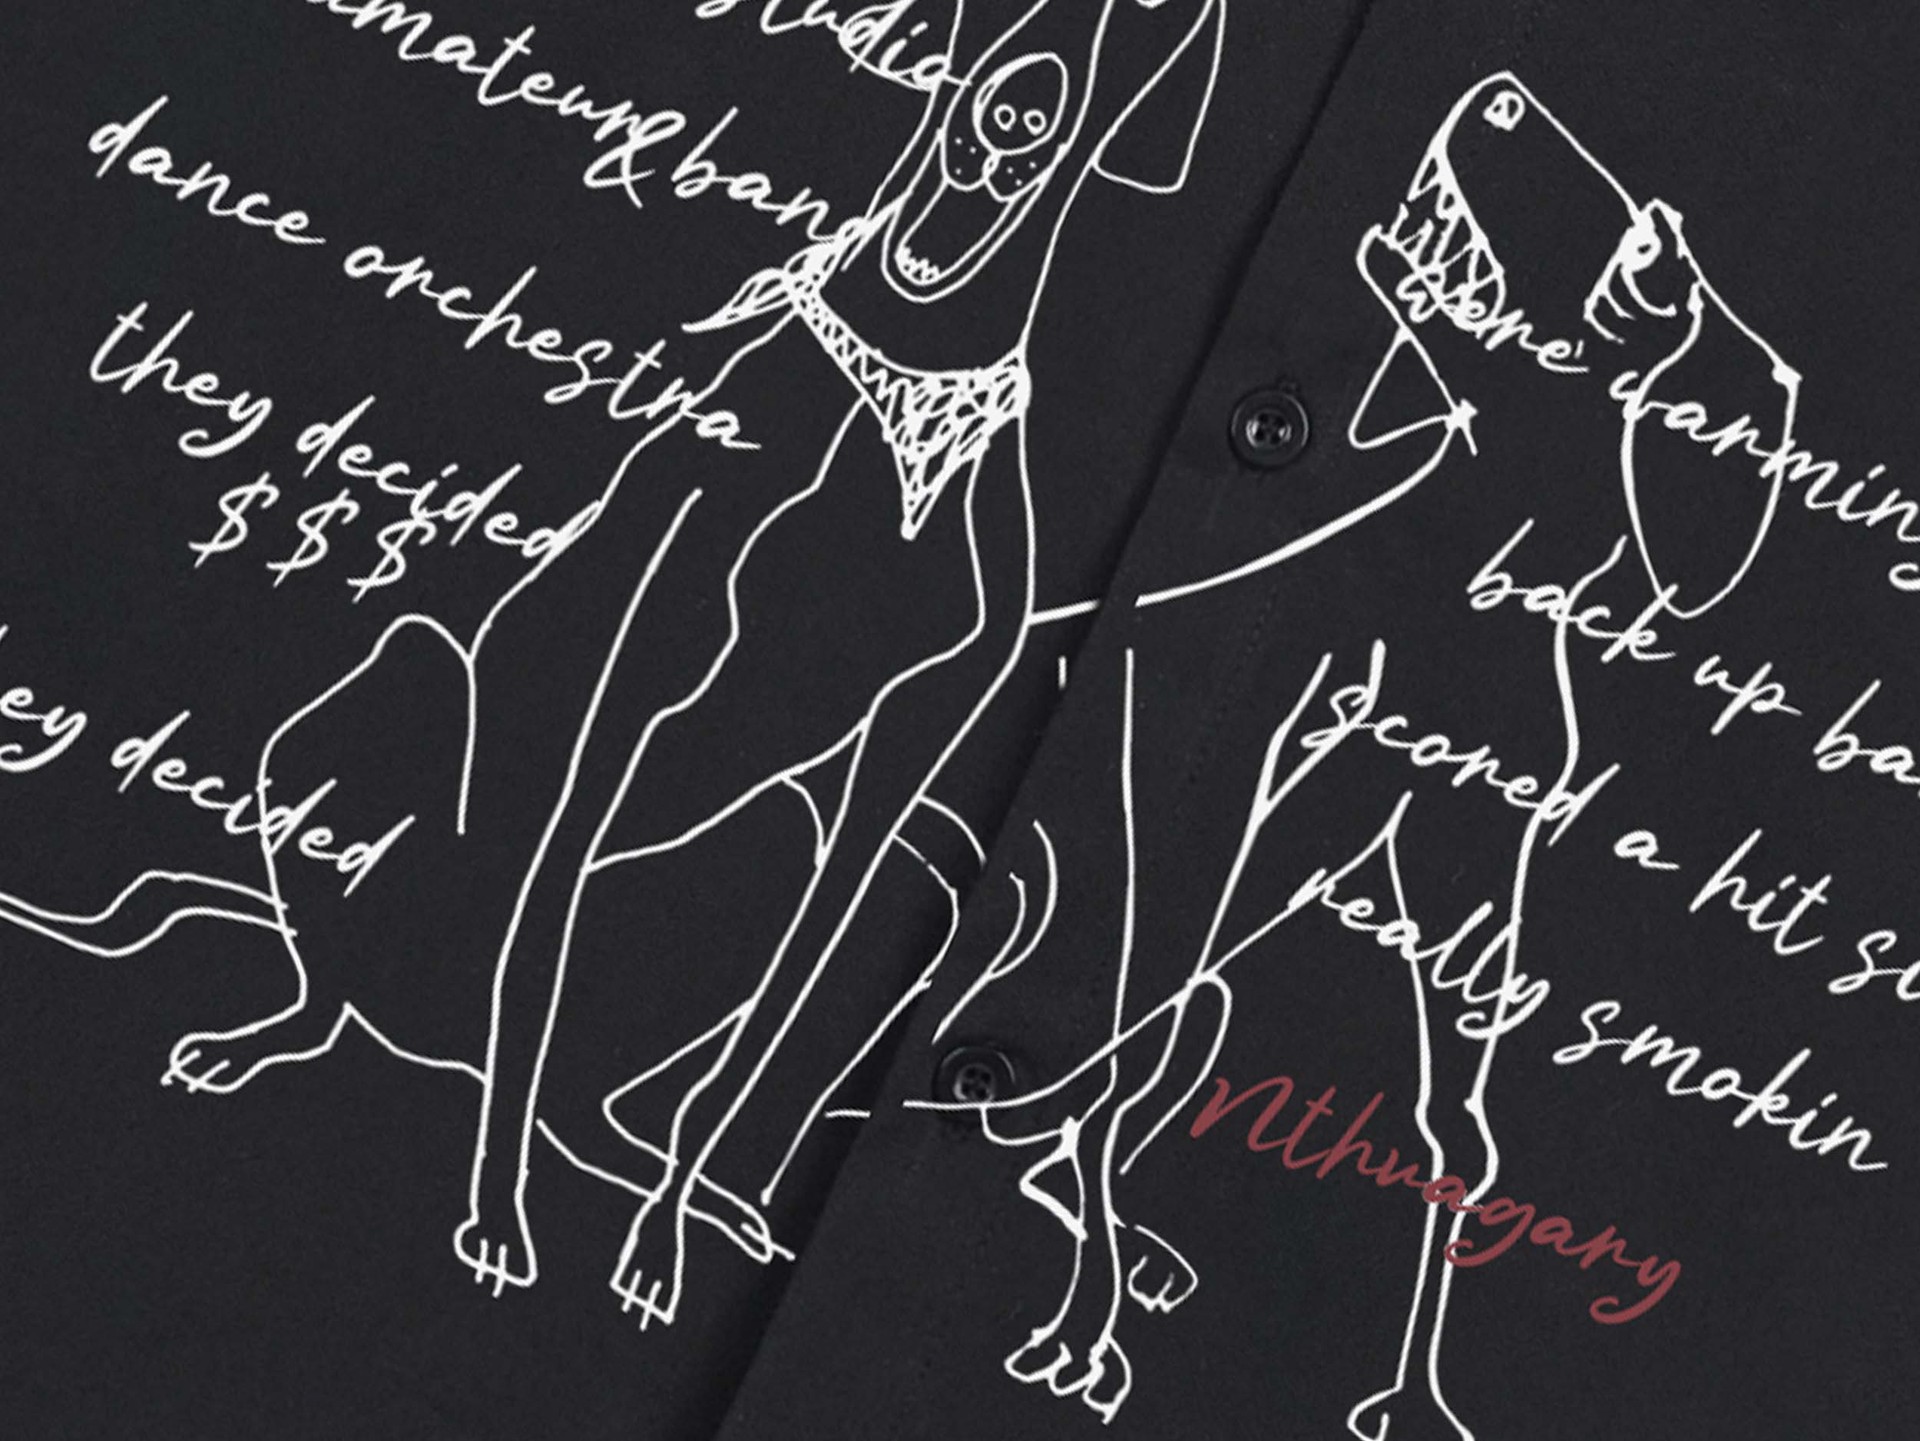 studio
amateur & band
dance orchestra
they decided
$ $ $
ey decided
were warming
back up ba
scored a hit s
really smokin
Nthuagary